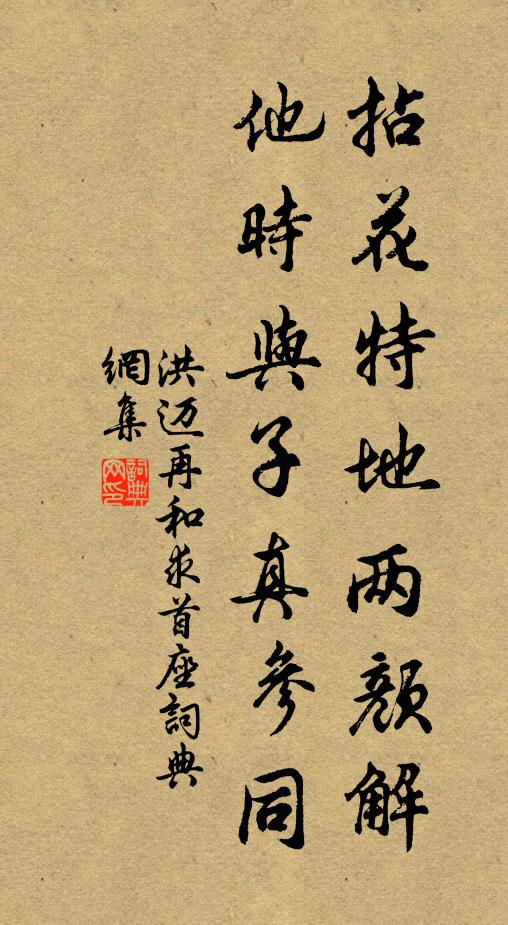 拈花特地两颜解
他時與子真參同
洪迈再和求首座詞典
網集
詞典
网印